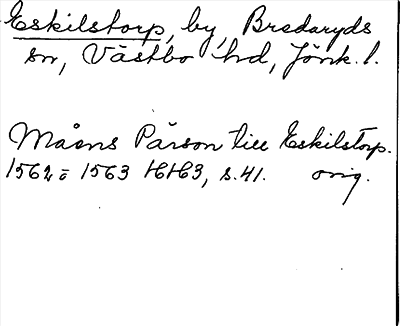 Eskilstorp, by, Bredaryds
sn, Västbo hd, Jönk. l.
Måens Pärson till Eskilstorp.
1562 = 1563 HH3, s. 41. orig.